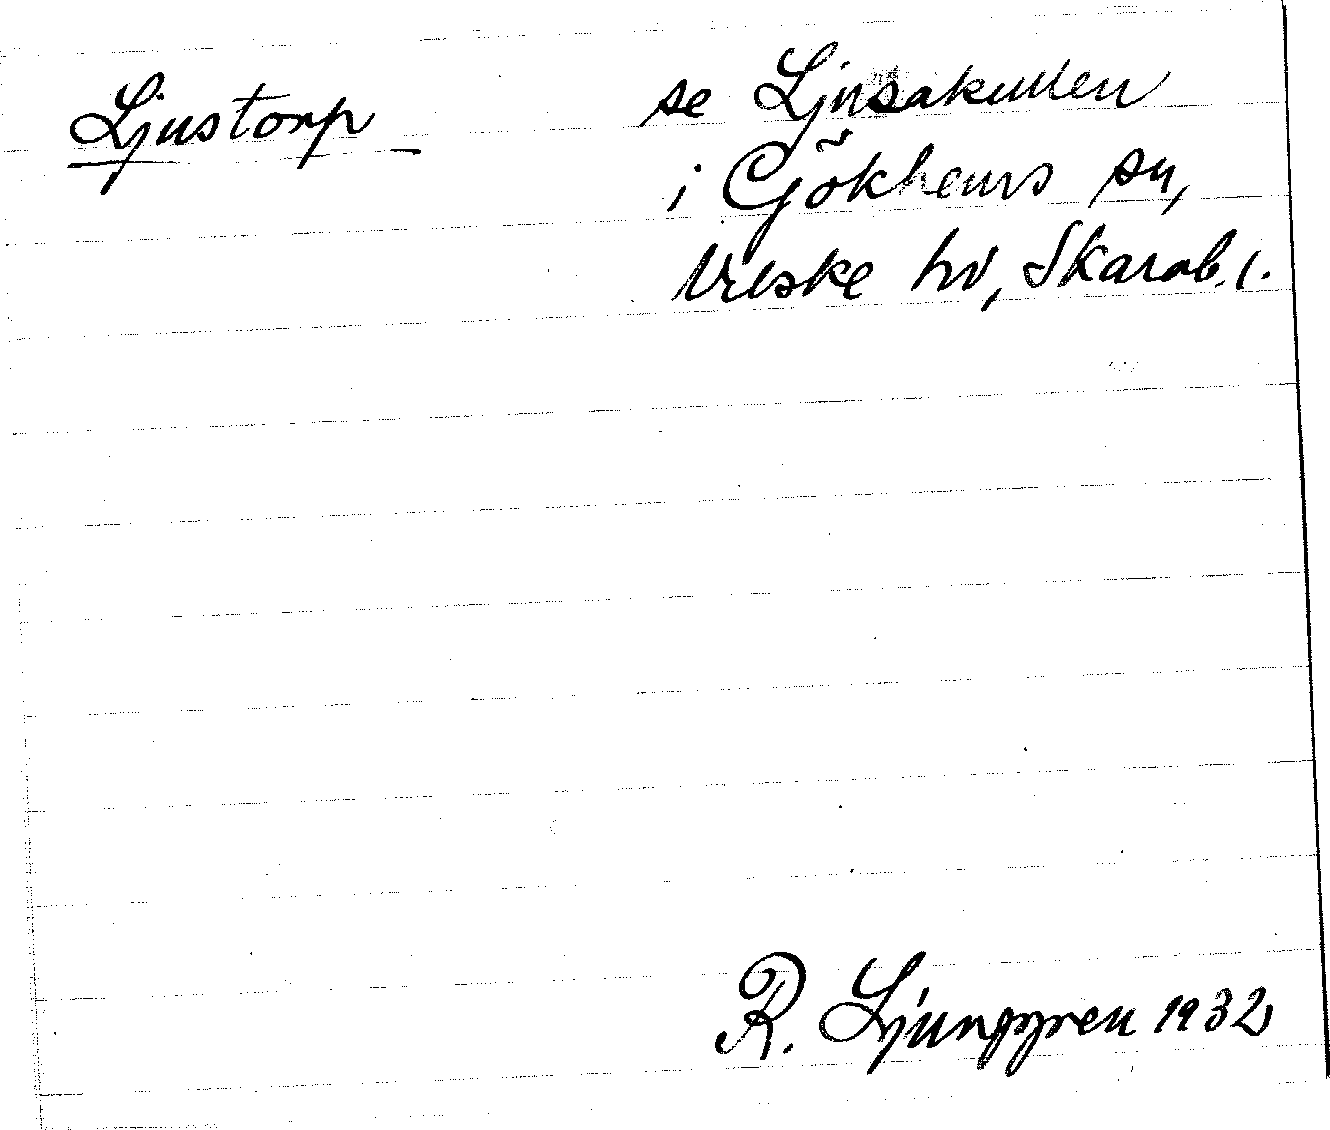 Ljustorp
se Ljusakullen
i Gökhems sn,
Vilske hd, Skarab. l.
R. Ljunggren 1932